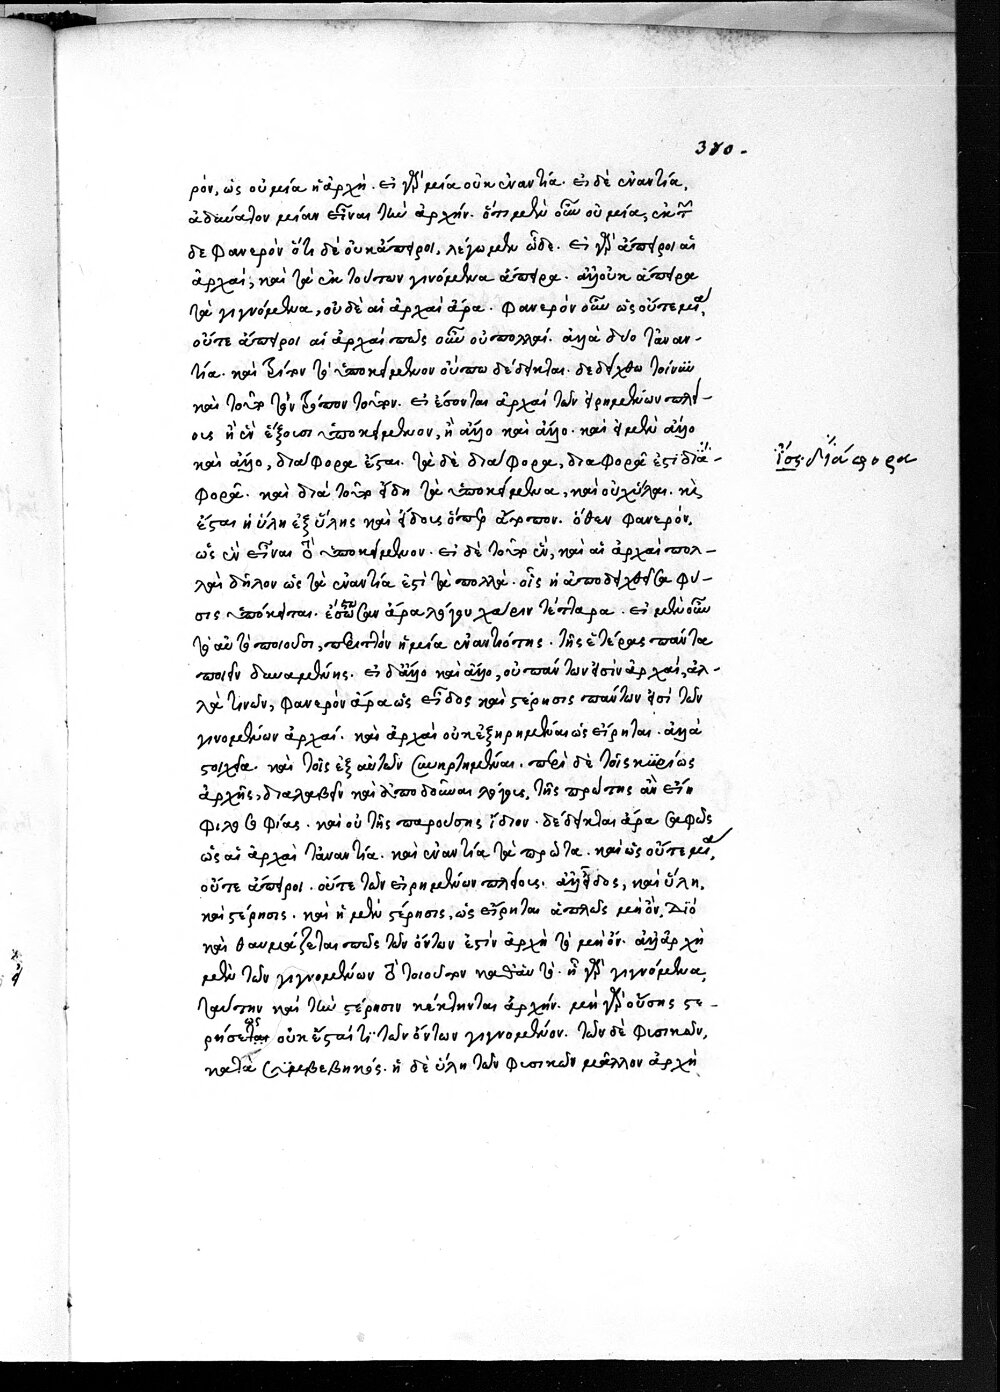 370.
ρόν, ὡς οὐ μία ἡ ἀρχή. εἰ γὰρ μία οὐκ ἐναντία. εἰ δὲ ἐναντία,
ἀδύνατον μίαν εἶναι τὴν ἀρχήν. ὅτι μὲν οὖν οὐ μία, ἐκ τῶν
δε φανερὸν ὅτι δὲ οὐκ ἄπειροι, λέγωμεν ὧδε. εἰ γὰρ ἄπειροι αἱ
ἀρχαὶ, καὶ τὰ ἐκ τούτων γινόμενα ἄπειρα. ἀλλ' οὐκ ἄπειρα
τὰ γιγνόμενα, οὐδὲ αἱ ἀρχαὶ ἄρα. φανερὸν οὖν ὡς οὔτε μία,
οὔτε ἄπειροι αἱ ἀρχαί πῶς οὖν οὐ πολλαί. ἀλλὰ δύο τἀναν-
τία. καὶ τρίτον τὸ ὑποκείμενον οὔπω δέδεικται. δεδείχθω τοίνυν
καὶ τοῦτο τὸν τρόπον τοῦτον. εἰ ἔσονται ἀρχαὶ τῶν εἰρημένων πλεί-
ους ἢ ἓν ἕξουσι ὑποκείμενον, ἢ ἄλλο καὶ ἄλλο. καὶ εἰ μὲν ἄλλο
καὶ ἄλλο, διάφορα ἔσται. τὰ δὲ διάφορα, διαφορᾷ ἐστὶ διά-
φορα. καὶ διὰ τοῦτο εἴδη τὰ ὑποκείμενα, καὶ οὐχ ὕλαι. καὶ
ἔσται ἡ ὕλη ἐξ ὕλης καὶ εἴδους ὅπερ ἄτοπον. ὅθεν φανερόν,
ὡς ἓν εἶναι τὸ ὑποκείμενον. εἰ δὲ τοῦτο ἓν, καὶ αἱ ἀρχαὶ πολ-
λαὶ δῆλον ὡς τὰ ἐναντία ἐστὶ τὰ πολλὰ. οἷς ἡ ἀποδειχθεῖσα φύ-
σις ὑπόκειται. ἔστωσαν ἄρα λόγου χάριν τέτταρα. εἰ μὲν οὖν
τὸ αὐτὸ ποιοῦσι, περιττὸν ἡ μία ἐναντιότης. τῆς ἑτέρας πάντα
ποιεῖν δυναμένης. εἰ δ' ἄλλο καὶ ἄλλο, οὐ πάντων εἰσὶν ἀρχαί, ἀλ-
λὰ τινῶν, φανερὸν ἄρα ὡς εἶδος καὶ στέρησις πάντων εἰσὶ τῶν
γινομένων ἀρχαί. καὶ ἀρχαὶ οὐκ ἐξῃρημέναι ὡς εἴρηται. ἀλλὰ
στοιχεῖα. καὶ τοῖς ἐξ αὐτῶν συνηρτημέναι. περὶ δὲ τῆς κυρίως
ἀρχῆς, διαλαβεῖν καὶ ἀποδοῦναι λόγους, τῆς πρώτης ἂν εἴη
φιλοσοφίας. καὶ οὐ τῆς παρούσης ἴδιον. δέδεικται ἄρα σαφῶς
ὡς αἱ ἀρχαὶ τἀναντία. καὶ ἐναντία τὰ πρῶτα. καὶ ὡς οὔτε μία,
οὔτε ἄπειροι. οὔτε τῶν εἰρημένων πλείους. ἀλλ' εἶδος, καὶ ὕλη,
καὶ στέρησις. καὶ ἡ μὲν στέρησις, ὡς εἴρηται ἁπλῶς μὴ ὄν. Διὸ
καὶ θαυμάζεται πῶς τῶν ὄντων ἐστὶν ἀρχὴ τὸ μὴ ὄν. ἀλλ' ἀρχὴ
μὲν τῶν γιγνομένων τὸ τοιοῦτον καθ' αὑτό. ᾗ γὰρ γιγνόμενα,
ταύτην καὶ τὴν στέρησιν κέκτηνται ἀρχήν. μὴ γὰρ οὔσης στε-
ρήσεως οὐκ ἔσται τι τῶν ὄντων γιγνομένον. τῶν δὲ φυσικῶν,
κατὰ συμβεβηκός. ἡ δὲ ὕλη τῶν φυσικῶν μᾶλλον ἀρχὴ
ἴσ. διάφορα